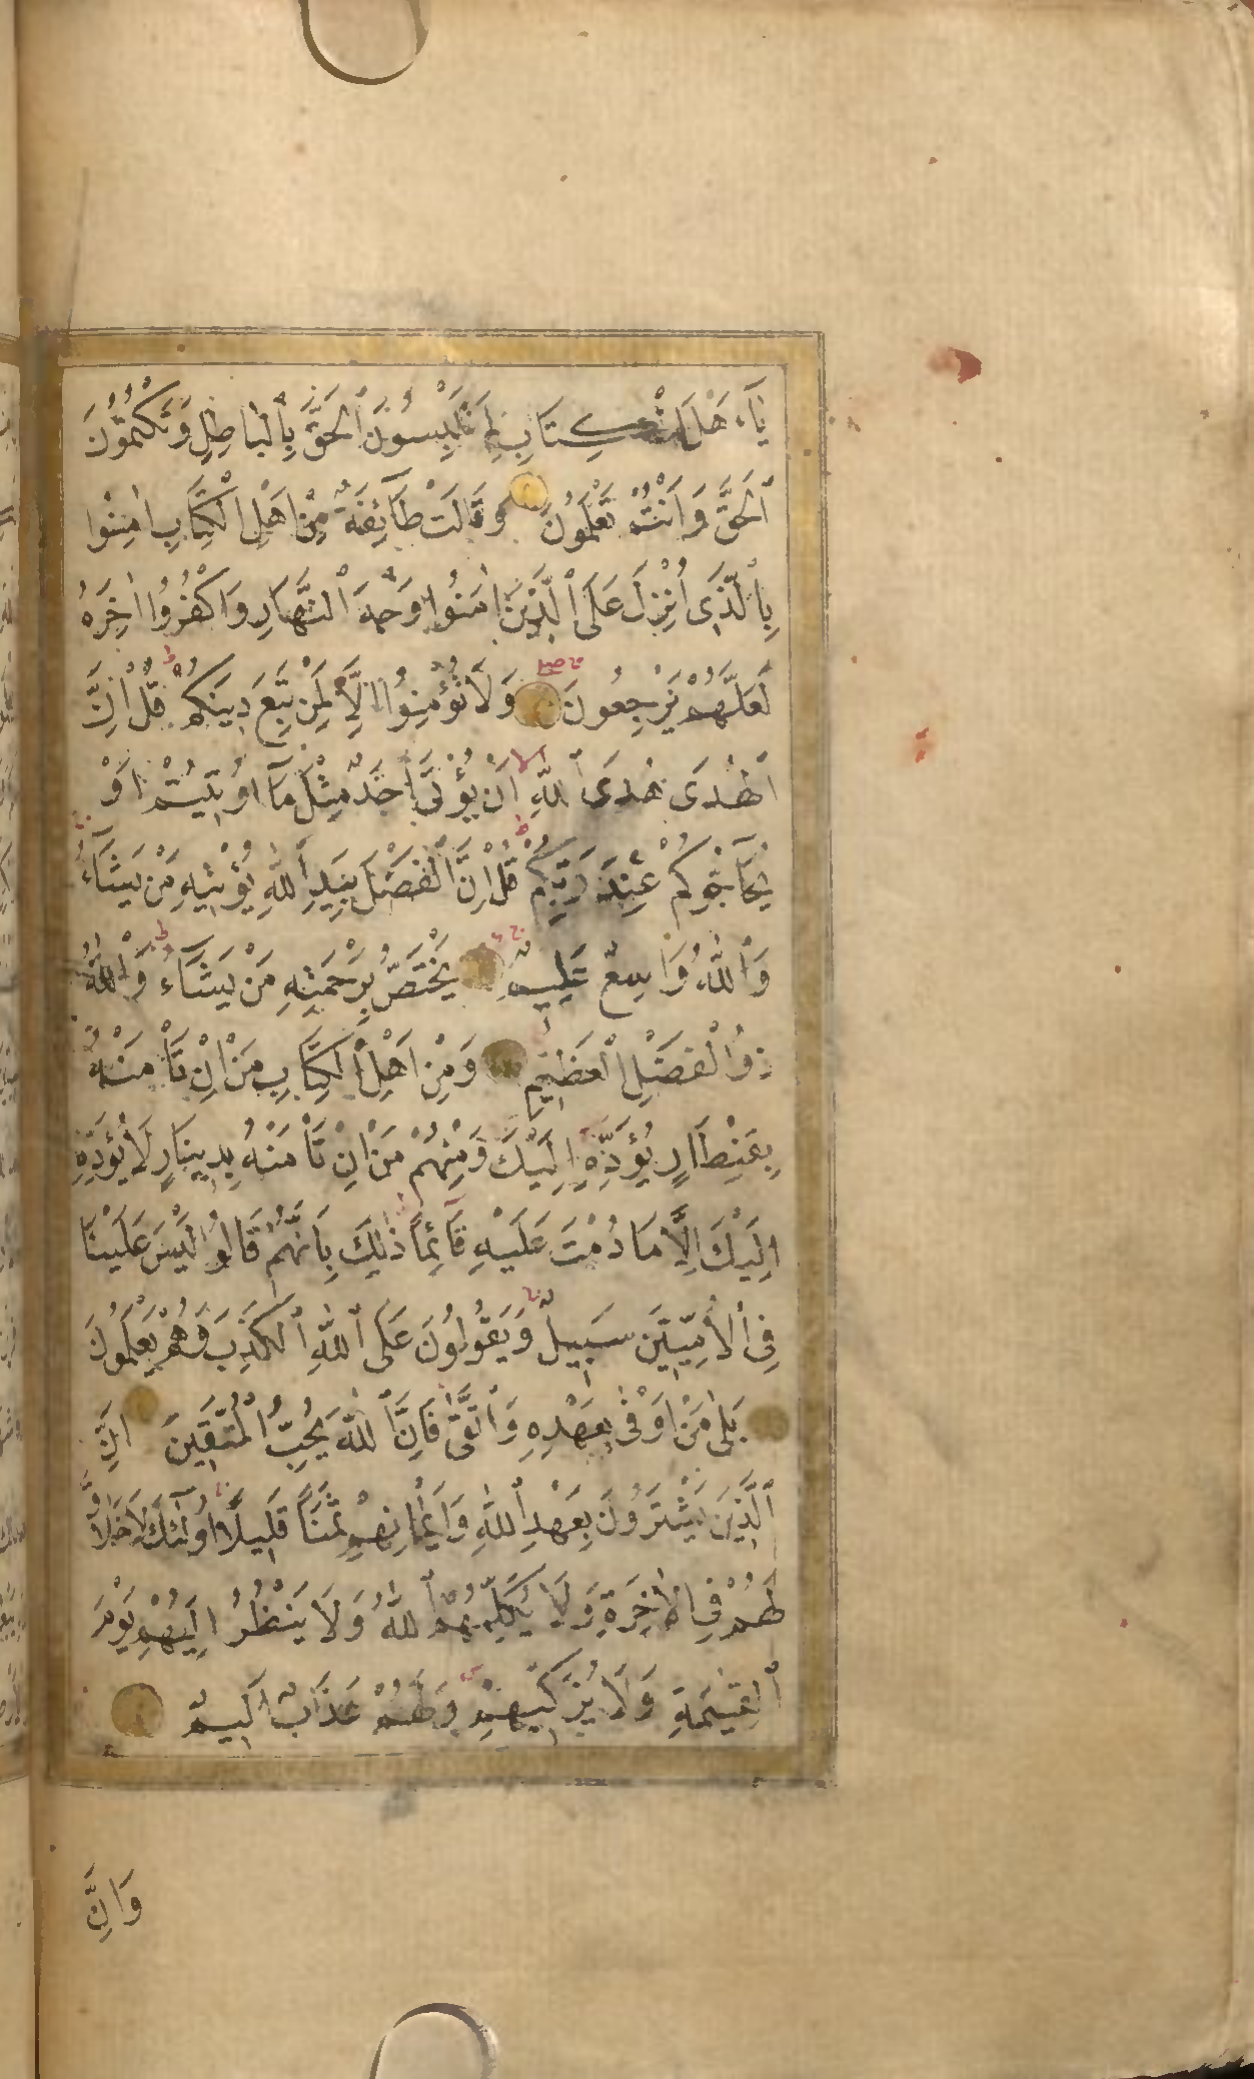 يَاۤ اَهْلَ الْكِتَابِ لِمَ تَلْبِسُونَ الْحَقَّ بِالْبَاطِلِ وَتَكْتُمُونَ
الْحَقَّ وَاَنْتُمْ تَعْلَمُونَ وَقَالَتْ طَاۤئِفَةٌ مِنْ اَهْلِ الْكِتَابِ اٰمِنُوا
بِالَّذِۤى اُنْزِلَ عَلَى الَّذِينَ اٰمَنُوا وَجْهَ النَّهَارِ وَاكْفُرُوا اٰخِرَهُ
لَعَلَّهُمْ يَرْجِعُونَ وَلَا تُؤْمِنُوا اِلَّا لِمَنْ تَبِعَ دِينَكُمْ قُلْ اِنَّ
الْهُدَى هُدَى اللّٰهِ اَنْ يُؤْتٰى اَحَدٌ مِثْلَ مَاۤ اُوتِيتُمْ اَوْ
يُحَاۤجُّوكُمْ عِنْدَ رَبِّكُمْ قُلْ اِنَّ الْفَضْلَ بِيَدِ اللّٰهِ يُؤْتِيهِ مَنْ يَشَاۤءُ
وَاللّٰهُ وَاسِعٌ عَلِيمٌ يَخْتَصُّ بِرَحْمَتِهِ مَنْ يَشَاۤءُ وَاللّٰهُ
ذُو الْفَضْلِ الْعَظِيمِ وَمِنْ اَهْلِ الْكِتَابِ مَنْ اِنْ تَأْمَنْهُ
بِقِنْطَارٍ يُؤَدِّهِ اِلَيْكَ وَمِنْهُمْ مَنْ اِنْ تَأْمَنْهُ بِدِينَارٍ لَا يُؤَدِّهِ
اِلَيْكَ اِلَّا مَا دُمْتَ عَلَيْهِ قَاۤئِمًا ذٰلِكَ بِاَنَّهُمْ قَالُوا لَيْسَ عَلَيْنَا
فِى الْاُمِّيِّينَ سَبِيلٌ وَيَقُولُونَ عَلَى اللّٰهِ الْكَذِبَ وَهُمْ يَعْلَمُونَ
بَلٰى مَنْ اَوْفٰى بِعَهْدِهِ وَاتَّقٰى فَاِنَّ اللّٰهَ يُحِبُّ الْمُتَّقِينَ اِنَّ
الَّذِينَ يَشْتَرُونَ بِعَهْدِ اللّٰهِ وَاَيْمَانِهِمْ ثَمَنًا قَلِيلًا اُولٰۤئِكَ لَا خَلَاقَ
لَهُمْ فِى الْاٰخِرَةِ وَلَا يُكَلِّمُهُمُ اللّٰهُ وَلَا يَنْظُرُ اِلَيْهِمْ يَوْمَ
الْقِيٰمَةِ وَلَا يُزَكِّيهِمْ وَلَهُمْ عَذَابٌ اَلِيمٌ
وَاِنَّ